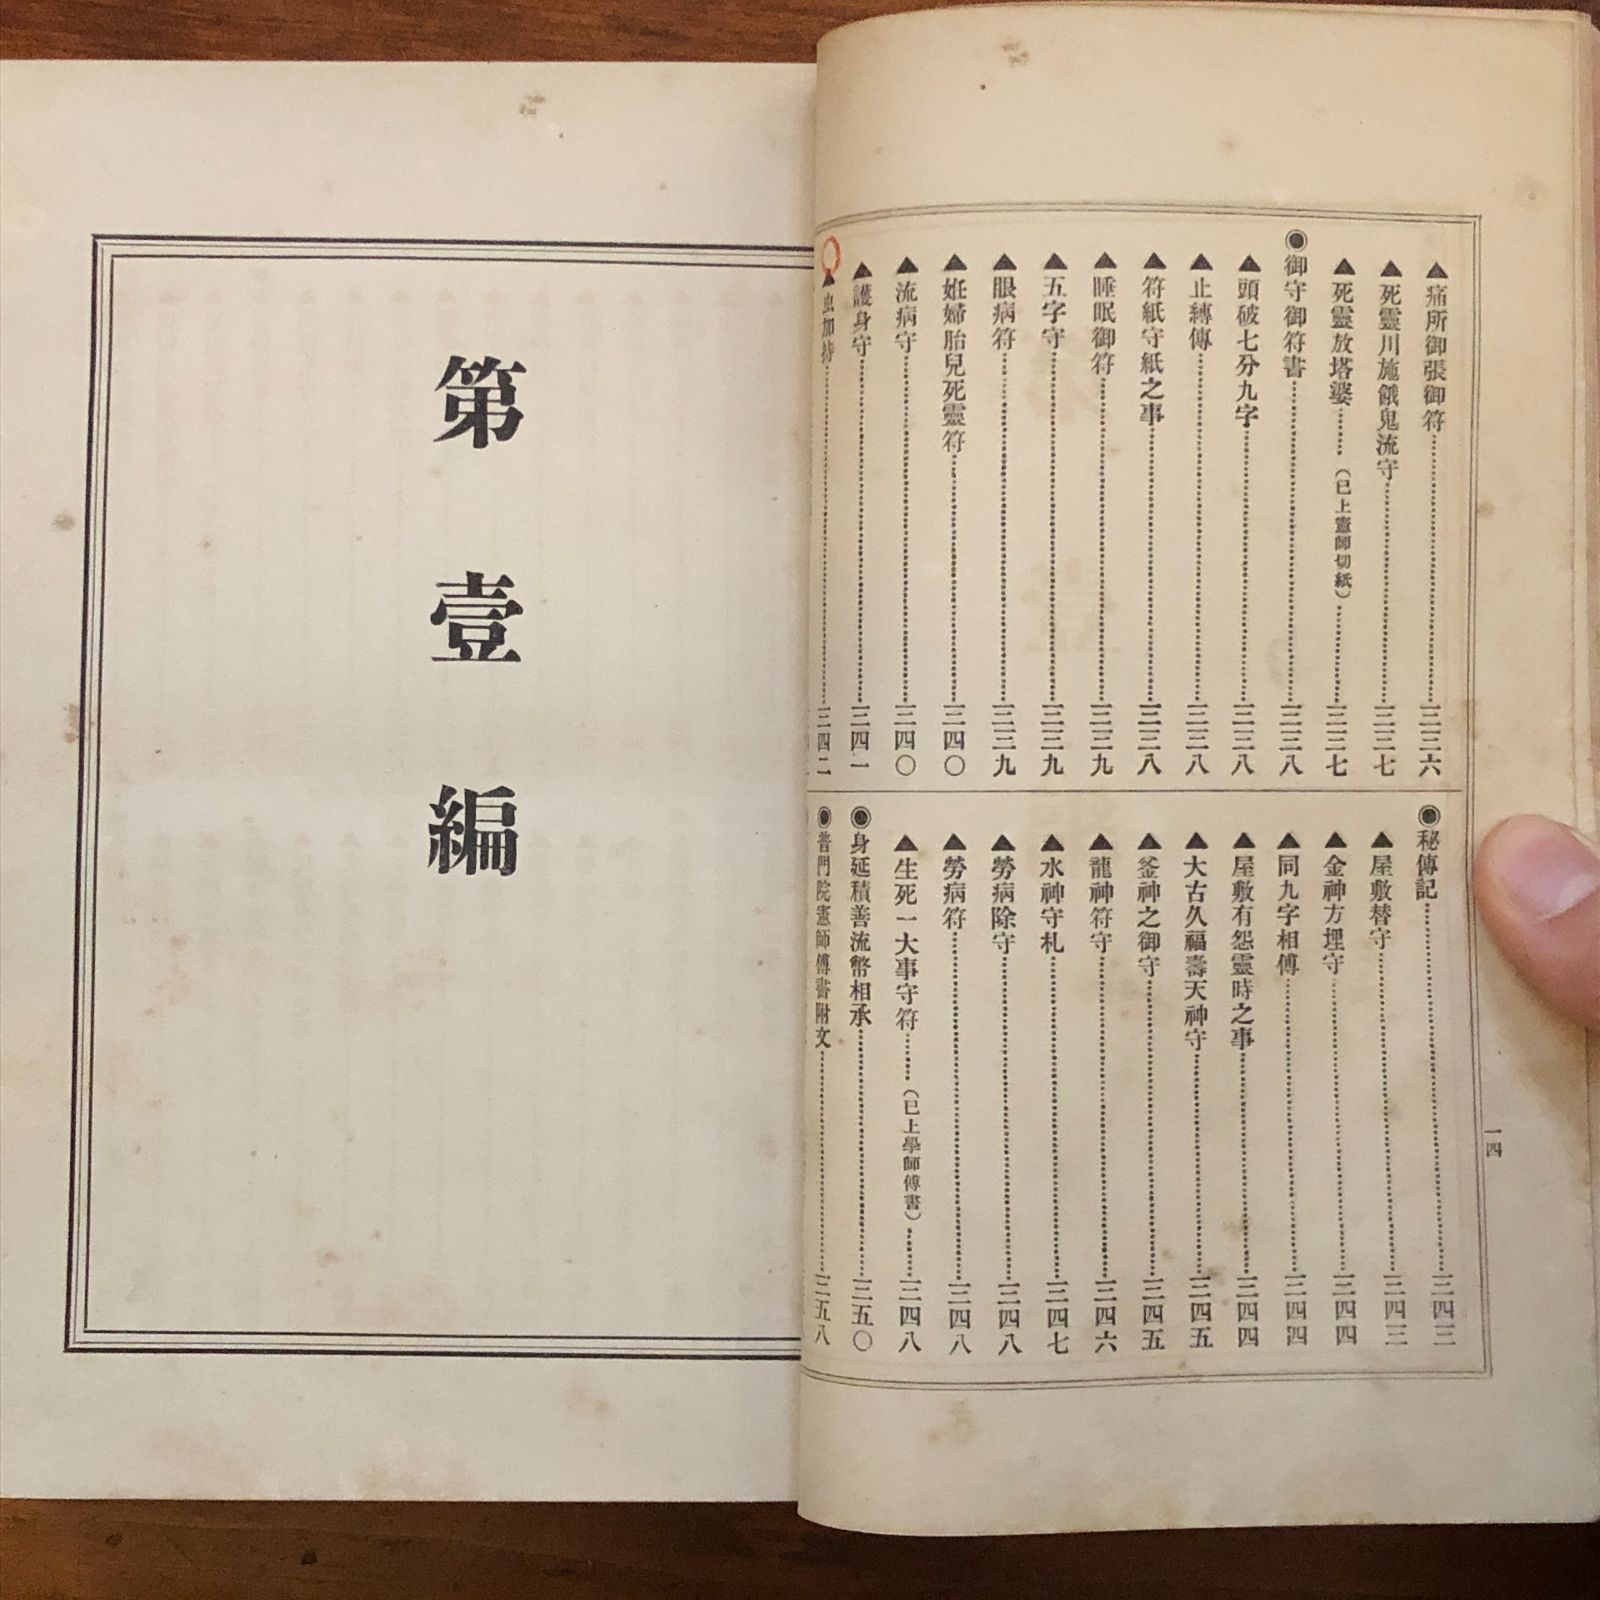 ▲痛所御張御符………三三六
▲死靈川施餓鬼流守………三三七
▲死靈放塔婆………(已上憲師切紙)………三三七
◉御守御符書………三三八
▲頭破七分九字………三三八
▲止縛傳………三三八
▲符紙守紙之事………三三八
▲睡眠御符………三三九
▲五字守………三三九
▲眼病符………三三九
▲姙婦胎兒死靈符………三四〇
▲流病守………三四〇
▲護身守………三四一
▲虫加持………三四二
◉秘傳記………三四三
▲屋敷替守………三四三
▲金神方埋守………三四四
▲同九字相傳………三四四
▲屋敷有怨靈時之事………三四四
▲大古久福壽天神守………三四五
▲釜神之御守………三四五
▲龍神符守………三四六
▲水神守札………三四七
▲勞病除守………三四八
▲勞病符………三四八
▲生死一大事守符………(已上學師傳書)………三四八
◉身延積善流幣相承………三五〇
◉普門院憲師傳書附文………三五八
一四
第壹編